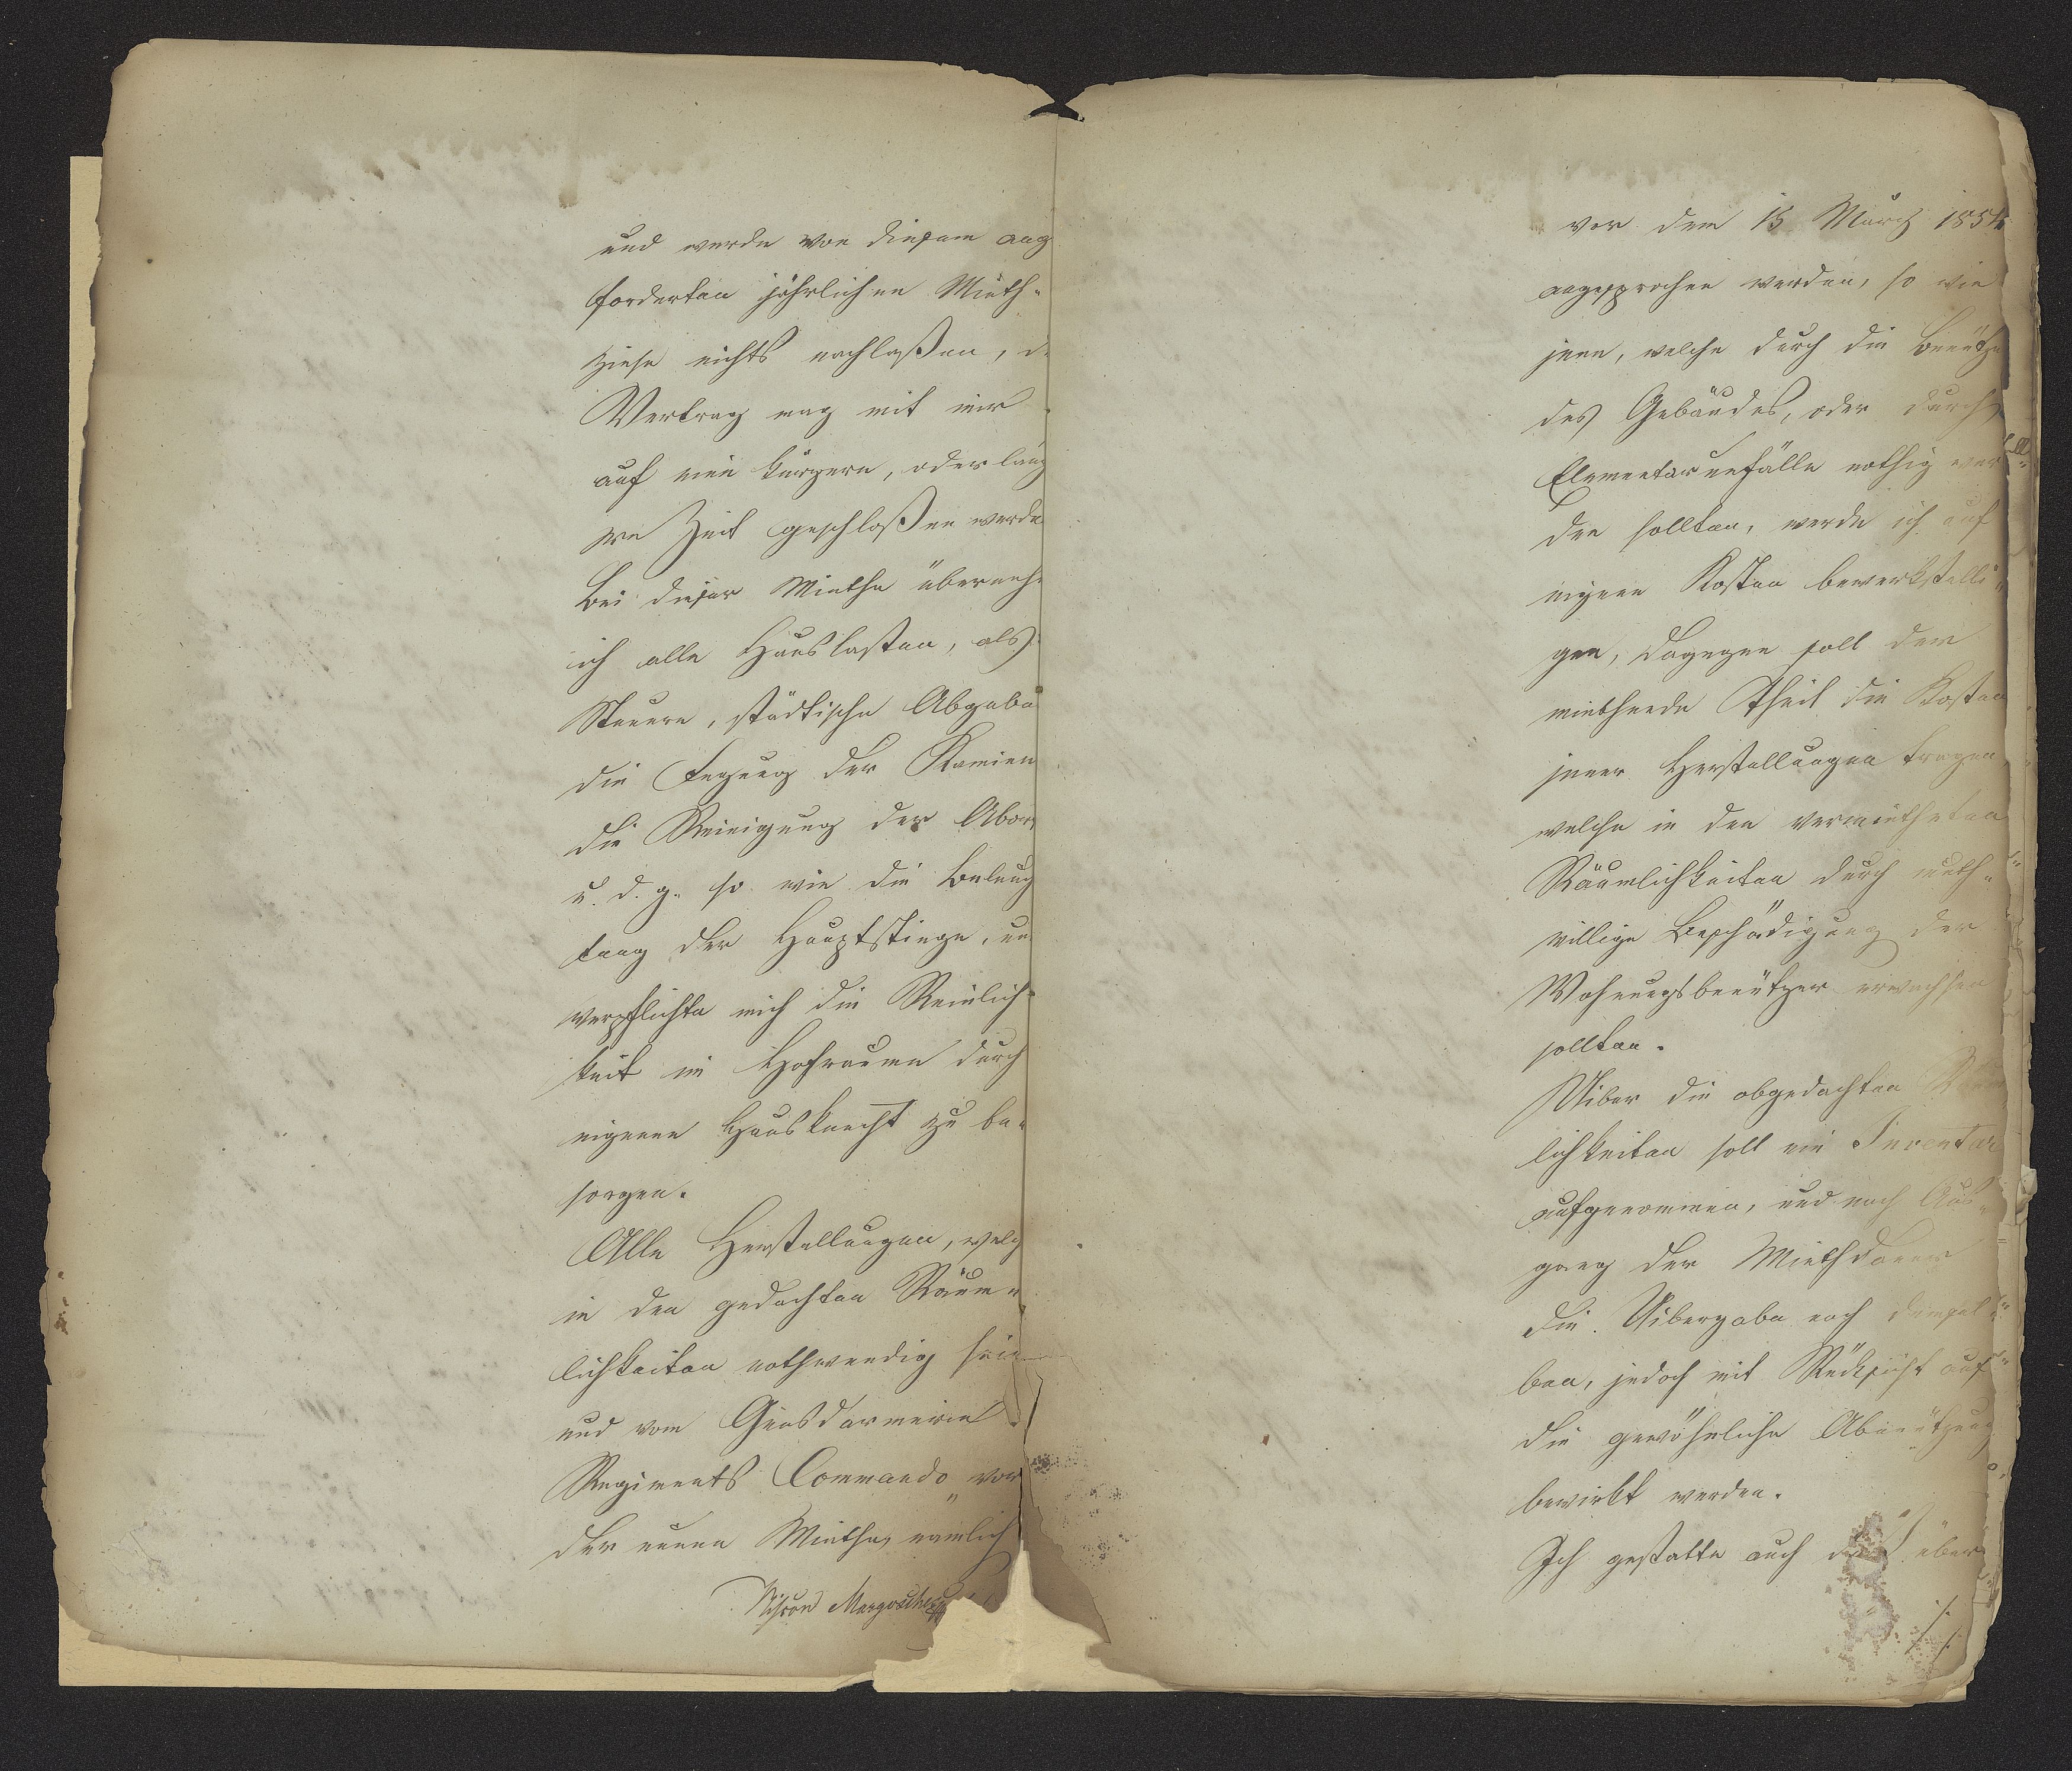 und werde von diesem ang
forderten jährlichen Mieth-
zinse nichts nachlaßen, d
Vertrag mag mit mir
auf eine kürzere, oder läng
re Zeit geschloßen werde
Bei dieser Miethe überneh
ich alle Hauslasten, als
Steuern, städtische Abgabe
die Fegung der Kamien
die Reinigung der Abor
u. d. g. so wie die Beleuch
tung der Hauptstiege, un
verpflichte mich die Reinlich-
keit im Hofraume durch
eigenen Hausknecht zu be-
sorgen.
Alle Herstellungen, welch
in den gedachten Räum-
lichkeiten nothwendig sein
und vom Gensdarmerie
Regiments Commando vor
der neuen Miethe, nemlich
Margosches
vor dem 15 März 1854
angesprochen werden, so wie
jene, welche durch die Benütz
des Gebäudes, oder durch
Elementarunfälle nothig wer
den sollten, werde ich auf
eigene Kosten bewerkstelli-
gen, dagegen soll der
miethende Theil die Kosten
jener Herstellungen tragen
welche in den vermietheten
Räumlichkeiten durch muth-
willige Beschädigung der
Wohnungsbenützer erwachsen
sollten.
Uiber die obgedachten Räum
lichkeiten soll ein Inventar
aufgenommen, und nach Aus-
gang der Miethdauer
die Uibergabe nach demsel-
ben, jedoch mit Rücksicht auf
die gewöhnliche Abnützung
bewirkt werden.
Ich gestatte auch daß über
./.